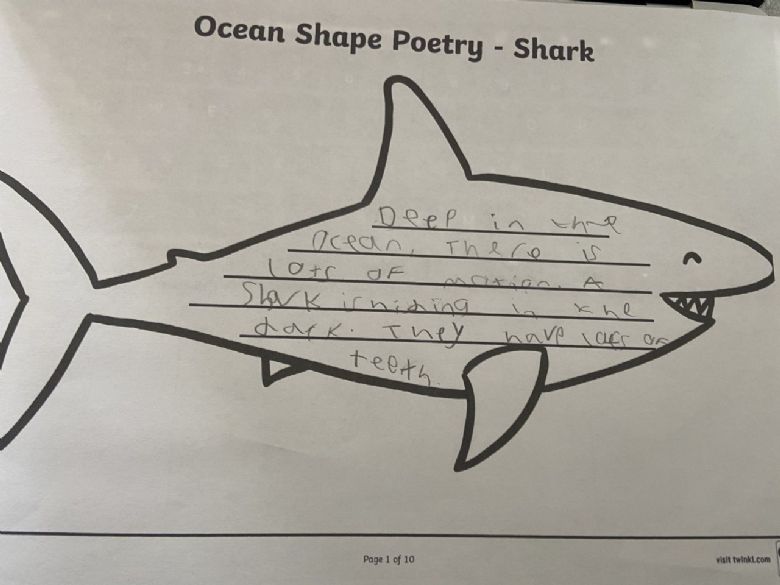 Ocean Shape Poetry - Shark
Deep in the
ocean. There is
lots of motion. A
Shark is hiding in the
dark. They have lots of
teeth.
Page 1 of 10
visit twinkl.com